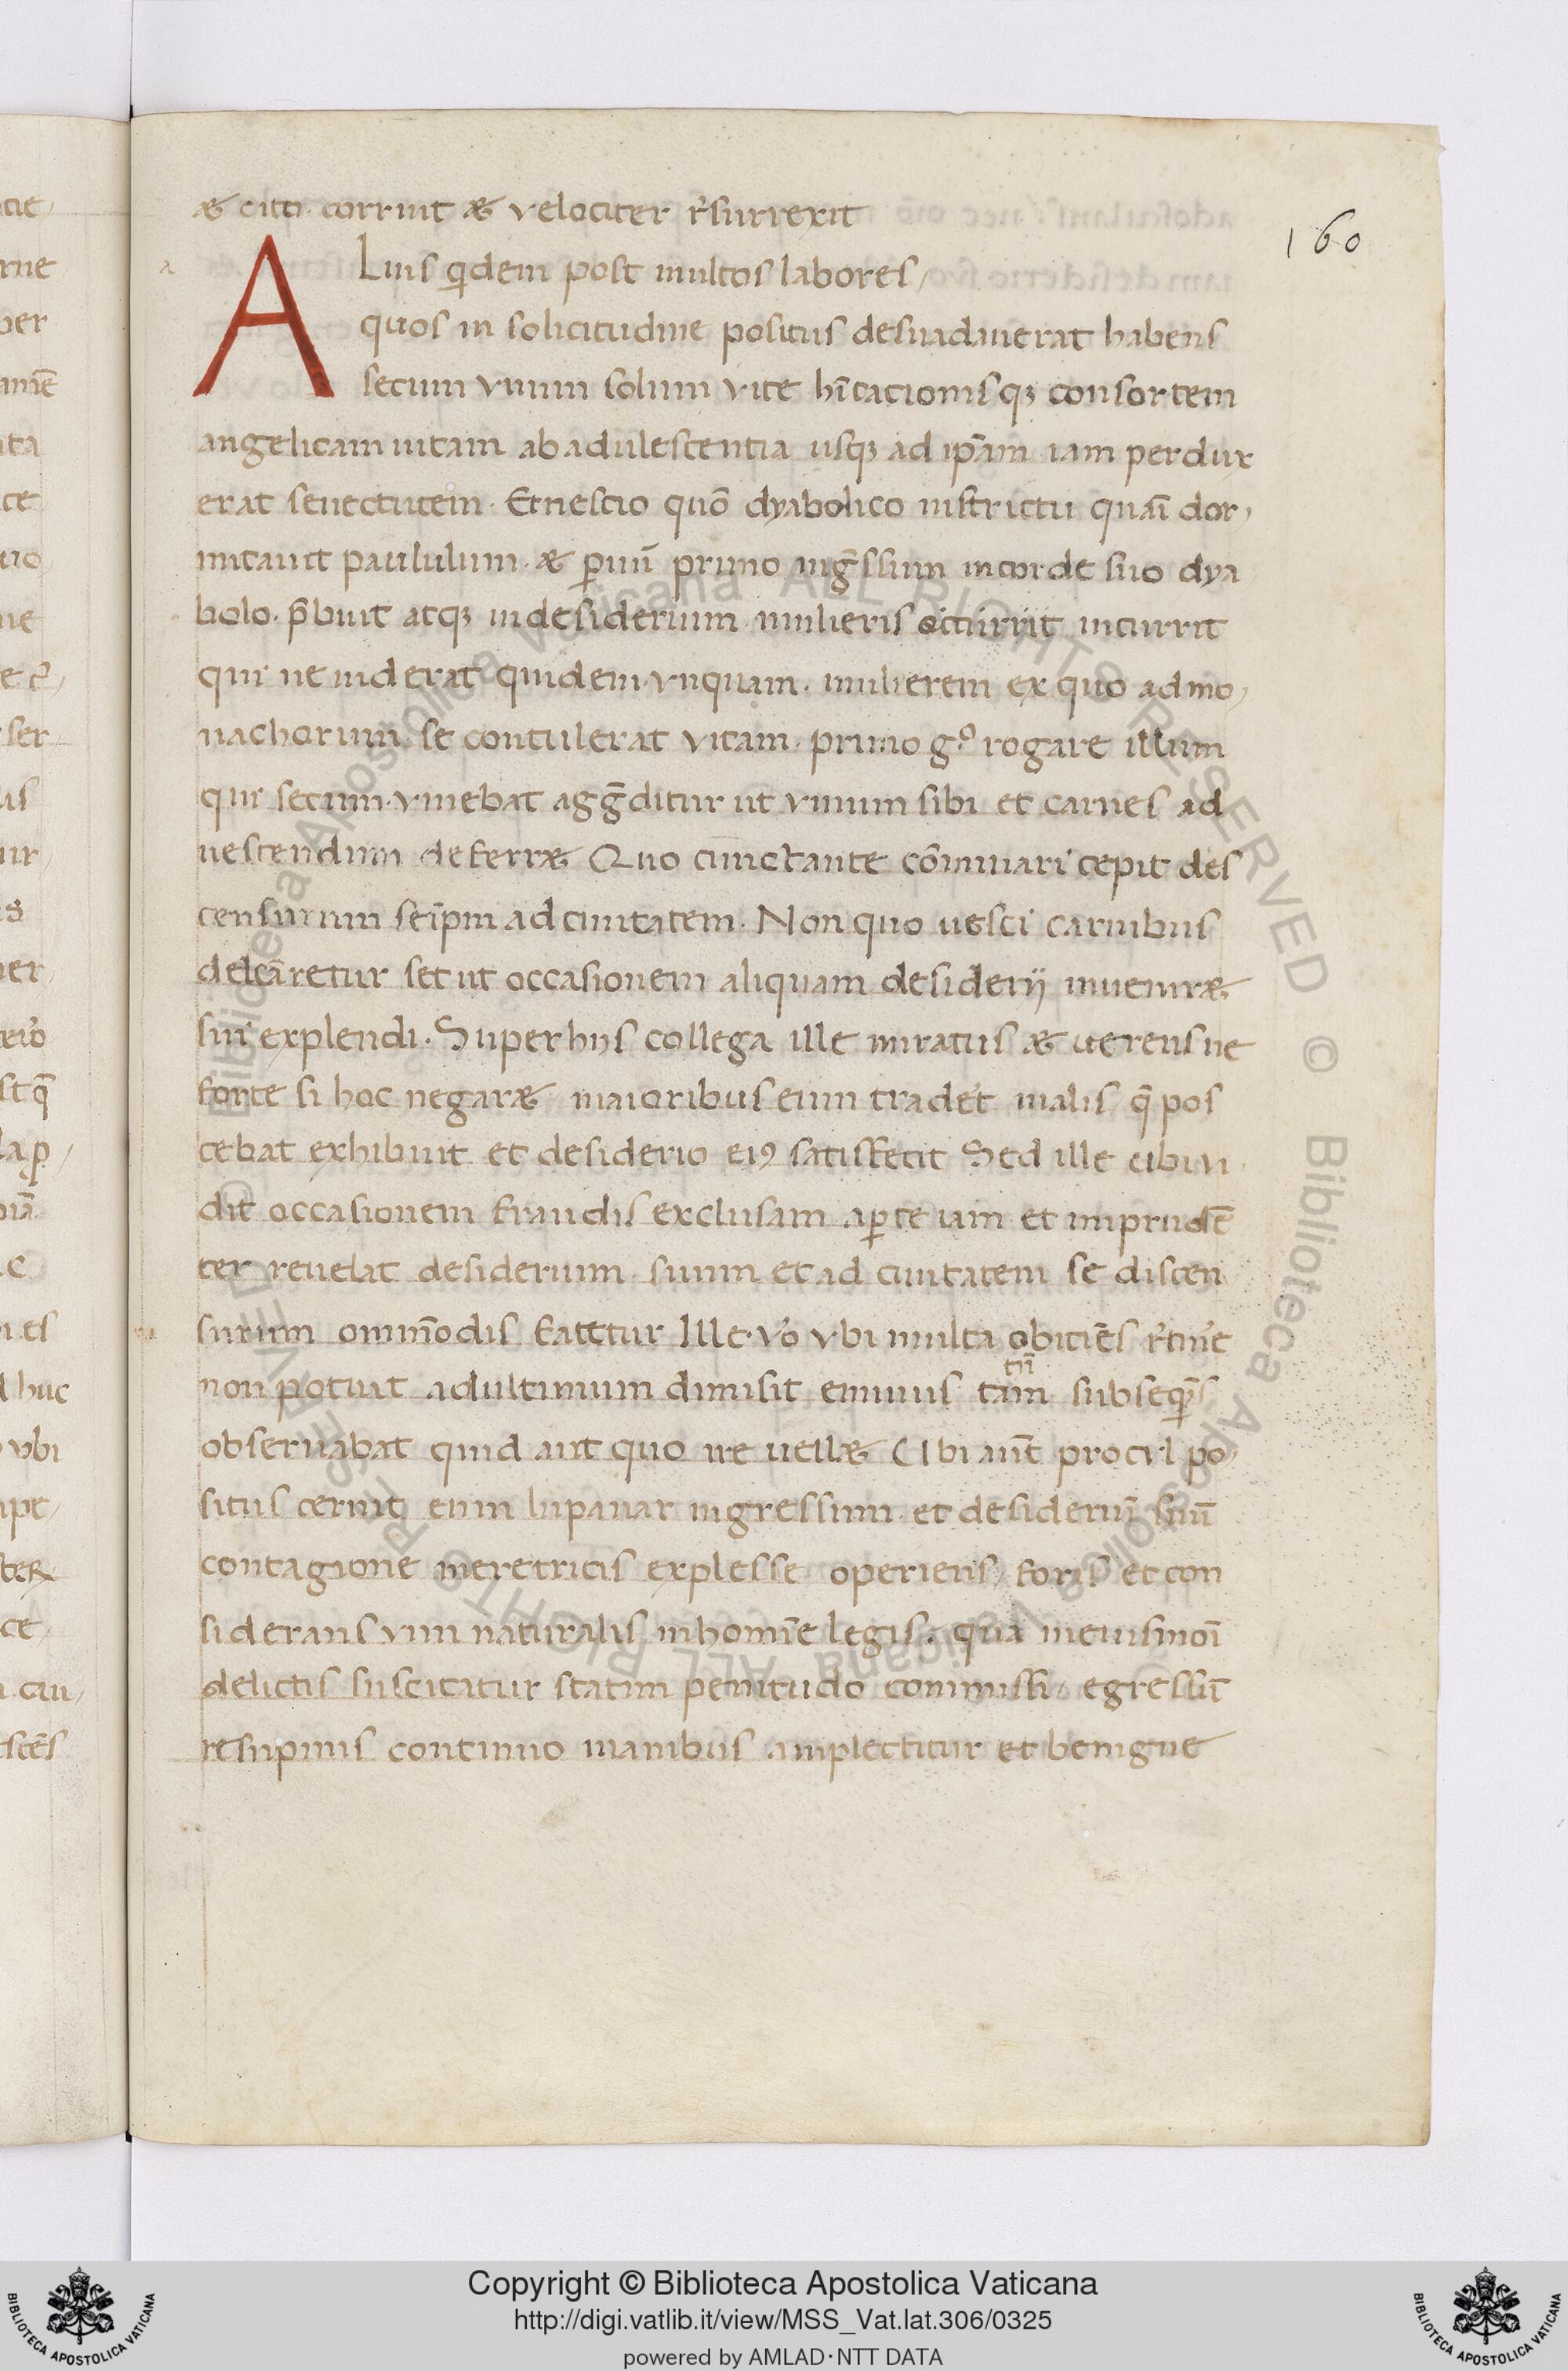 & cito corruit & velociter r̃surrexit
160
ALius q̃dem post multos labores,
quos in solicitudine positus desuadauerat habens
secum vnum solum vite hĩtacionisqꝫ consortem
angelicam uitam ab adulescentia usqꝫ ad ip̃am iam perdux
erat senectutem. Et nescio quõ dyabolico instrictu quãi dor,
mitauit paululum. & ꝑuũ primo ingr̃ssum in corde suo dya
bolo. p̃buit atqꝫ in desiderium mulieris occurrit incurrit
qui ne uiderat quidem vnquam. mulierem ex quo ad mo,
nachorum se contulerat vitam. primo g.º rogare illum
qui secum viuebat aggr̃ditur ut vinum sibi et carnes ad
uescendum deferr& Quo cunctante cõminari cepit des
censurum seip̃m ad ciuitatem. Non quo uesci carnibus
delcãretur set ut occasionem aliquam desiderij inuenir&
sui explendi. Super hijs collega ille miratus & uerens ne
forte si hoc negar& maioribus eum trader̃t malis, q̃ pos
cebat exhibuit et desiderio eiꝰ satisfecit Sed ille ubi ui
dit occasionem fraudis exclusam aꝑte iam et imprudẽ
ter reuelat desiderium suum et ad ciuitatem se discen
surum omnĩodis fatetur Ille vº vbi multa obiciẽs r̃tiner̃e
non potuit ad ultimum dimisit eminus tam tñ subseq̃ns
obseruabat quid aut quo ire uell& Ubi aut̃ procul po,
situs cernit eum lupanar ingressum et desideriũ suũ
contagione meretricis explesse operiens, foris et con
siderans vim naturalis in homĩe legis. qua in eiusmoĩ
delictis suscitatur statim penitudo commissi, egressũ
resupinis continuo manibus amplectitur et benigne
Copyright © Biblioteca Apostolica Vaticana
http://digi.vatlib.it/view/MSS_Vat.lat.306/0325
powered by AMLAD·NTT DATA